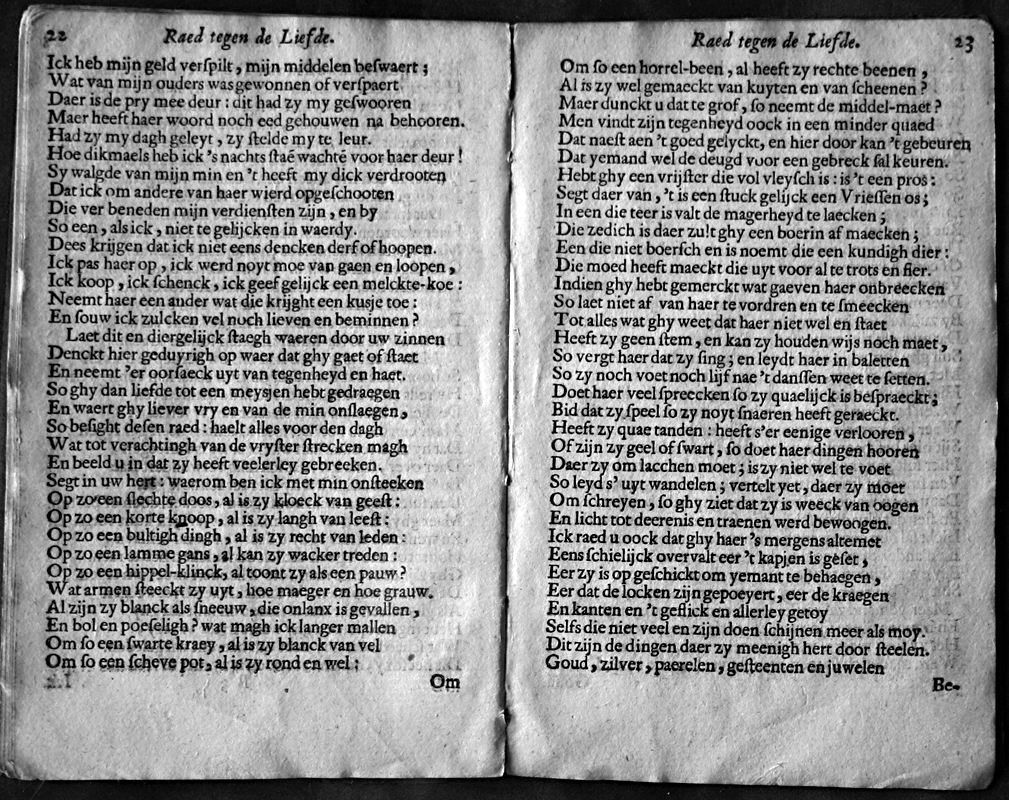 22
Raed tegen de Liefde.
Ick heb mijn geld verſpilt, mijn middelen beſwaert;
Wat van mijn ouders was gewonnen of verſpaert
Daer is de pry mee deur: dit had zy my geſwooren
Maer heeft haer woord noch eed gehouwen na behooren.
Had zy my dagh geleyt, zy ſtelde my te leur.
Hoe dikmaels heb ick 's nachts ſtaé wachté voor haer deur!
Sy walgde van mijn min en 't heeft my dick verdrooten
Dat ick om andere van haer wierd opgeſchooten
Die ver beneden mijn verdienſten zijn, en by
So een, als ick, niet te gelijcken in waerdy.
Dees krijgen dat ick niet eens dencken derf of hoopen.
Ick pas haer op, ick werd noyt moe van gaen en loopen,
Ick koop, ick ſchenck, ick geef gelijck een melckte-koe:
Neemt haer een ander wat die krijght een kusje toe:
En ſouw ick zulcken vel noch lieven en beminnen?
Laet dit en diergelijck ſtaegh waeren door uw zinnen
Denckt hier geduyrigh op waer dat ghy gaet of ſtaet
En neemt 'er oorſaeck uyt van tegenheyd en haet.
So ghy dan liefde tot een meysjen hebt gedraegen
En waert ghy liever vry en van de min onſlaegen,
So beſight deſen raed: haelt alles voor den dagh
Wat tot verachtingh van de vryſter ſtrecken magh
En beeld u in dat zy heeft veelerley gebreeken.
Segt in uw hert: waerom ben ick met min onſteeken
Op zo een ſlechte doos, al is zy kloeck van geeſt:
Op zo een korte knoop, al is zy langh van leeſt:
Op zo een bultigh dingh, al is zy recht van leden:
Op zo een lamme gans, al kan zy wacker treden:
Op zo een hippel-klinck, al toont zy als een pauw?
Wat armen ſteeckt zy uyt, hoe maeger en hoe grauw.
Al zijn zy blanck als ſneeuw, die onlanx is gevallen,
En bol en poeſeligh? wat magh ick langer mallen
Om ſo een ſwarte kraey, al is zy blanck van vel
Om ſo een ſcheve pot, al is zy rond en wel:
Om
Raed tegen de Liefde.
23
Om ſo een horrel-been, al heeft zy rechte beenen,
Al is zy wel gemaeckt van kuyten en van ſcheenen?
Maer dunckt u dat te grof, ſo neemt de middel-maet?
Men vindt zijn tegenheyd oock in een minder quaed
Dat naeſt aen 't goed gelyckt, en hier door kan 't gebeuren
Dat yemand wel de deugd voor een gebreck ſal keuren.
Hebt ghy een vrijſter die vol vleyſch is: is 't een pros:
Segt daer van, 't is een ſtuck gelijck een Vrieſſen os;
In een die teer is valt de magerheyd te laecken;
Die zedich is daer zult ghy een boerin af maecken;
Een die niet boerſch en is noemt die een kundigh dier:
Die moed heeft maeckt die uyt voor al te trots en fier.
Indien ghy hebt gemerckt wat gaeven haer onbreecken
So laet niet af van haer te vordren en te ſmeecken
Tot alles wat ghy weet dat haer niet wel en ſtaet
Heeft zy geen ſtem, en kan zy houden wijs noch maet,
So vergt haer dat zy ſing; en leydt haer in baletten
So zy noch voet noch lijf nae 't danſſen weet te ſetten.
Doet haer veel ſpreecken ſo zy quaelijck is beſpraeckt;
Bid dat zy ſpeel ſo zy noyt ſnaeren heeft geraeckt.
Heeft zy quae tanden: heeft s'er eenige verlooren,
Of zijn zy geel of ſwart, ſo doet haer dingen hooren
Daer zy om lacchen moet; is zy niet wel te voet
So leyd s' uyt wandelen; vertelt yet, daer zy moet
Om ſchreyen, ſo ghy ziet dat zy is weeck van oogen
En licht tot deerenis en traenen werd bewoogen.
Ick raed u oock dat ghy haer 's mergens altemet
Eens ſchielijck overvalt eer 't kapjen is geſet,
Eer zy is op geſchickt om yemant te behaegen,
Eer dat de locken zijn gepoeyert, eer de kraegen
En kanten en 't geſlick en allerley getoy
Selfs die niet veel en zijn doen ſchijnen meer als moy.
Dit zijn de dingen daer zy meenigh hert door ſteelen.
Goud, zilver, paerelen, geſteenten en juwelen
Be-